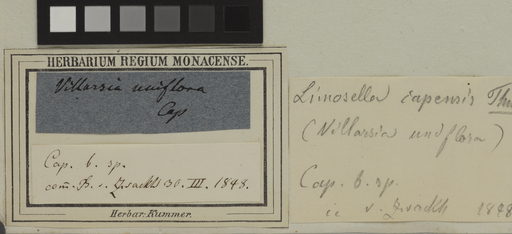 HERBARIUM REGIUM MONACENSE.
Villarsia uniflora
Cap
Cap. b. sp.
com. v. Zwackh 30. III. 1848.
Herbar: Kummer.
Limosella capensis Thu
(Villarsia uniflora)
Cap. b. sp.
v. Zwackh 1848